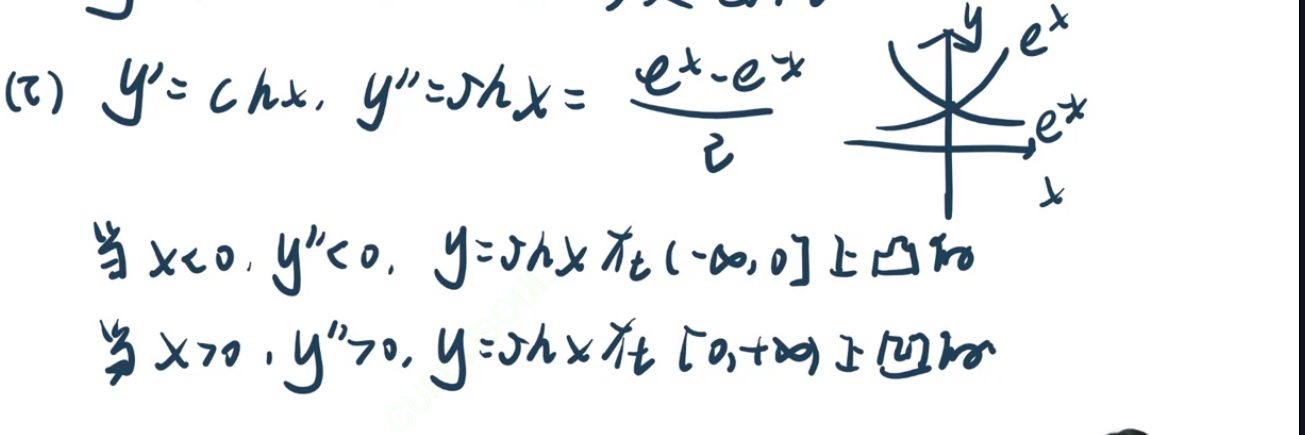 (2) y'=chx, y''=shx= (e^x-e^-x)/2
y
e^x
e^-x
x
当 x<0, y''<0, y=shx在(-∞,0]上凸的
当 x>0, y''>0, y=shx在[0,+∞)上凹的